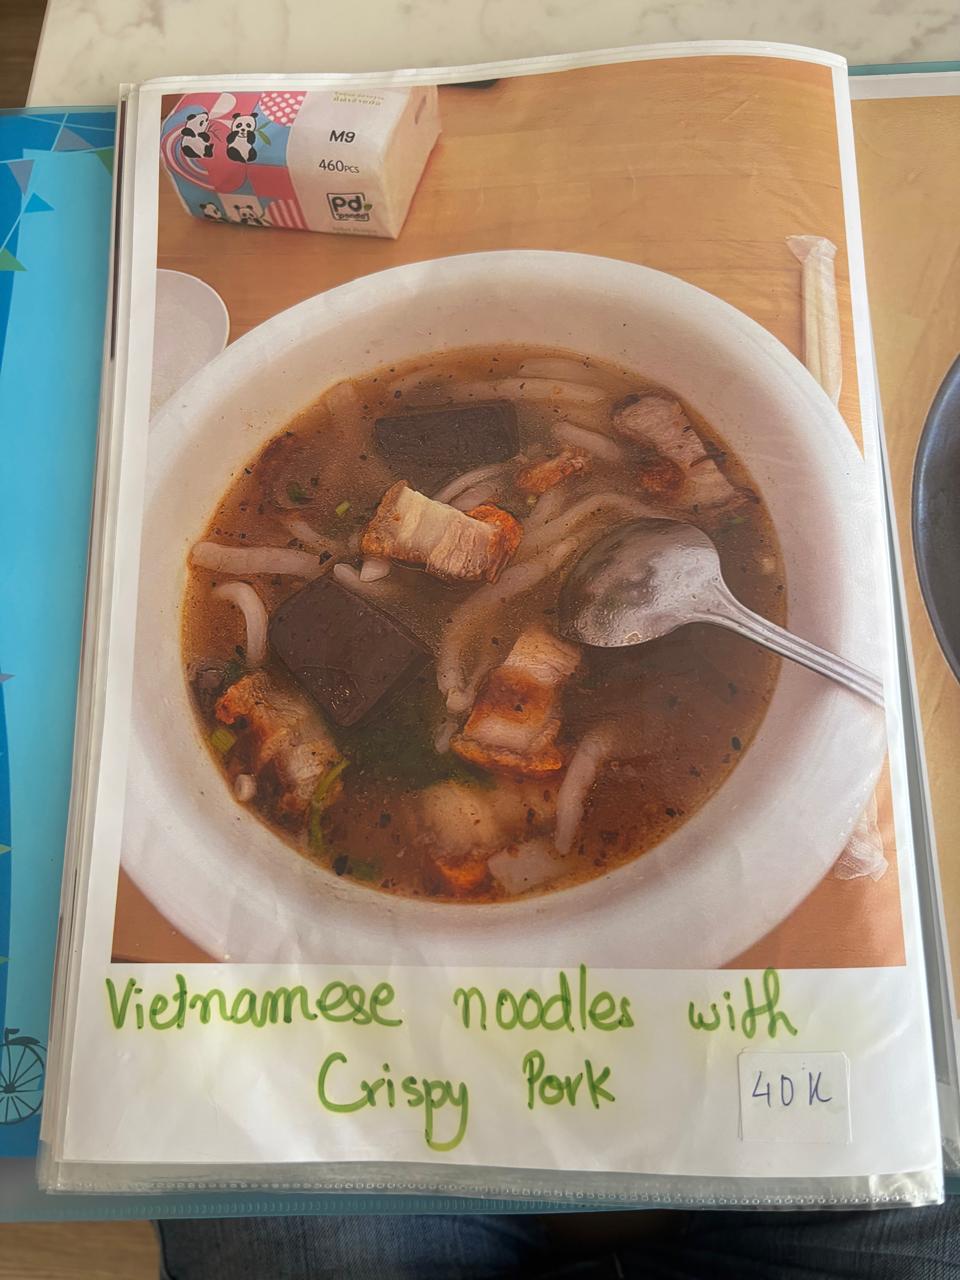 M9
460PCS
Pd
Panda
Vietnamese noodles with
Crispy Pork
40K